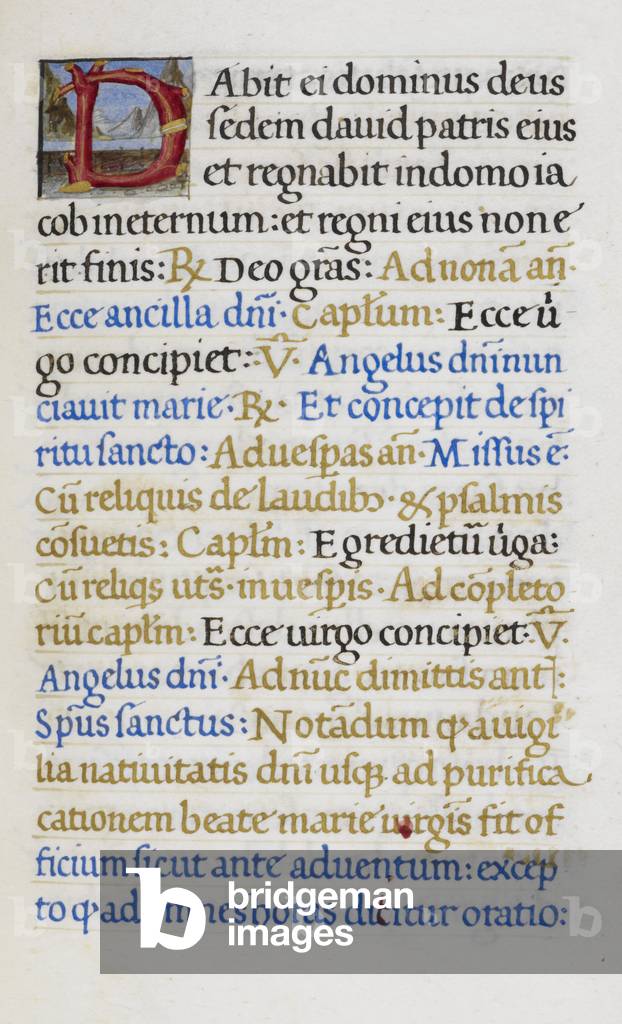 DAbit ei dominus deus
sedem dauid patris eius
et regnabit indomo ia
cob ineternum: et regni eius non e
rit finis: ℟ Deo gr̄as: Ad nonā an̄·
Ecce ancilla dn̄i· Capĺum: Ecce ū
go concipiet: V̄· Angelus dn̄i nun
ciauit marie· ℟· Et concepit de spi
ritu sancto: Ad uesꝑas an̄· Missus ē:
Cū reliquis de laudibꝫ· & psalmis
cōsuetis: Capĺm: Egredietū ūga:
Cū reliqs ut s̄· in uesꝑis· Ad cōpleto
riū capĺm: Ecce uirgo concipiet: V̄·
Angelus dn̄i· Ad nūc dimittis ant:
Sp̄us sanctus: Notādum ꝙ a uigi
lia natiuitatis dn̄i usqꝫ ad purifica
cationem beate marie uirgīs fit of
ficium sicut ante aduentum: excep
to ꝙ ad omnes horas dicitur oratio:
b bridgeman
images